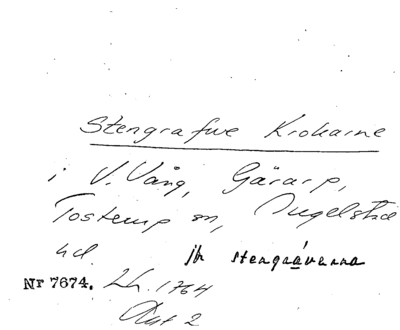 Stengrafwe Krokarne
i V. Vång, Gärarp,
Tosterup sn, Ingelstad
hd. jfr stengrávarna
Nr 7674. LH. 1764
Akt 2